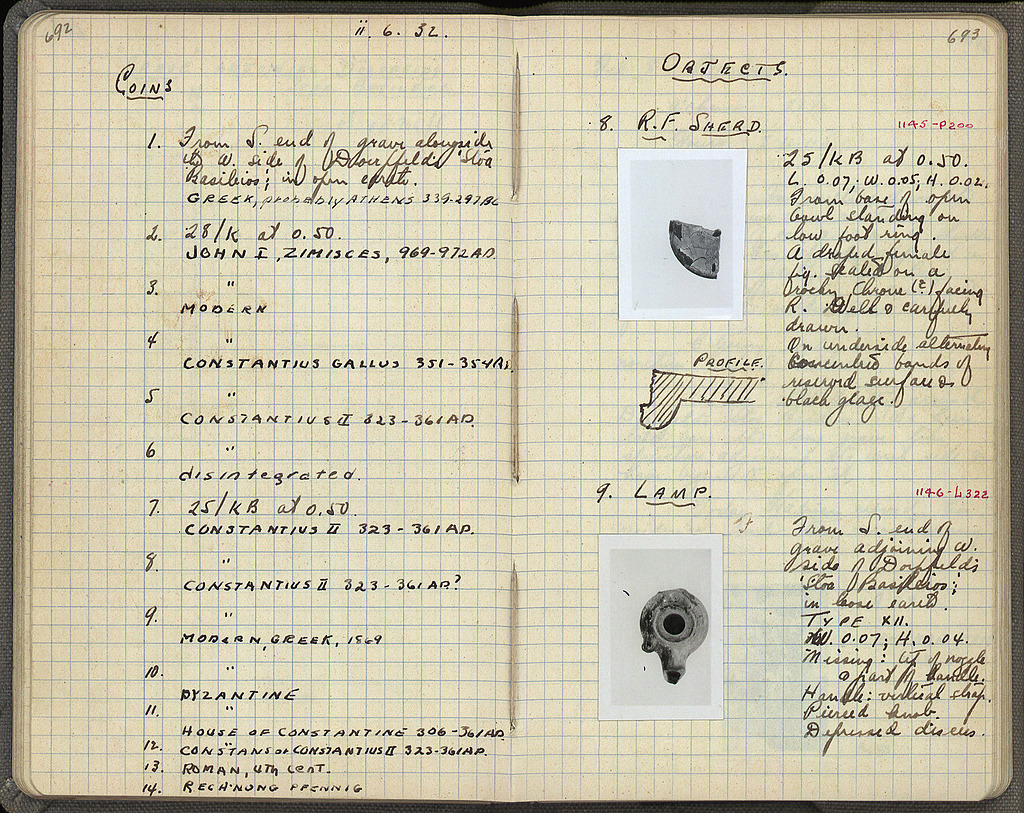 692
ii. 6. 32.
COINS
1. From S. end of grave alongside
the W. side of Doerpfelds 'Stoa
Basileios'; in open
GREEK, probably ATHENS 339-297BC
2. 28/K at 0.50.
JOHN I, ZIMISCES, 969-972AD.
3. "
MODERN
4 "
CONSTANTIUS GALLUS 351-354AD.
5 "
CONSTANTIUS II 323-361AD.
6 "
disintegrated.
7. 25/KB at 0.50.
CONSTANTIUS II 323-361AD.
8. "
CONSTANTIUS II 323-361AD?
9. "
MODERN, GREEK, 1869
10. "
BYZANTINE
11. "
HOUSE OF CONSTANTINE 306-361AD.
12. " CONSTANS or CONSTANTIUS II 323-361AD.
13. ROMAN, 4TH CENT.
14. RECHNUNG PFENNIG
693
OBJECTS.
8. R.F. SHERD.
1145-P200
25/KB at 0.50.
L. 0.07; W. 0.05; H. 0.02.
From base of open
bowl standing on
low foot ring.
A draped female
fig. seated on a
rocky throne (?) facing
R. Well & carefully
drawn.
On underside alternating
concentric bands of
reserved surface &
black glaze.
PROFILE.
9. LAMP.
1146-L322
From S. end of
grave adjoining W.
side of Dorpfelds
'Stoa Basileios';
in loose earth.
TYPE XII.
W. 0.07; H. 0.04.
Missing: tip of nozzle
& part of handle.
Handle: vertical strap.
Pierced knob.
Depressed discus.